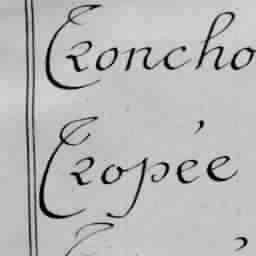 Troncho
Tropée